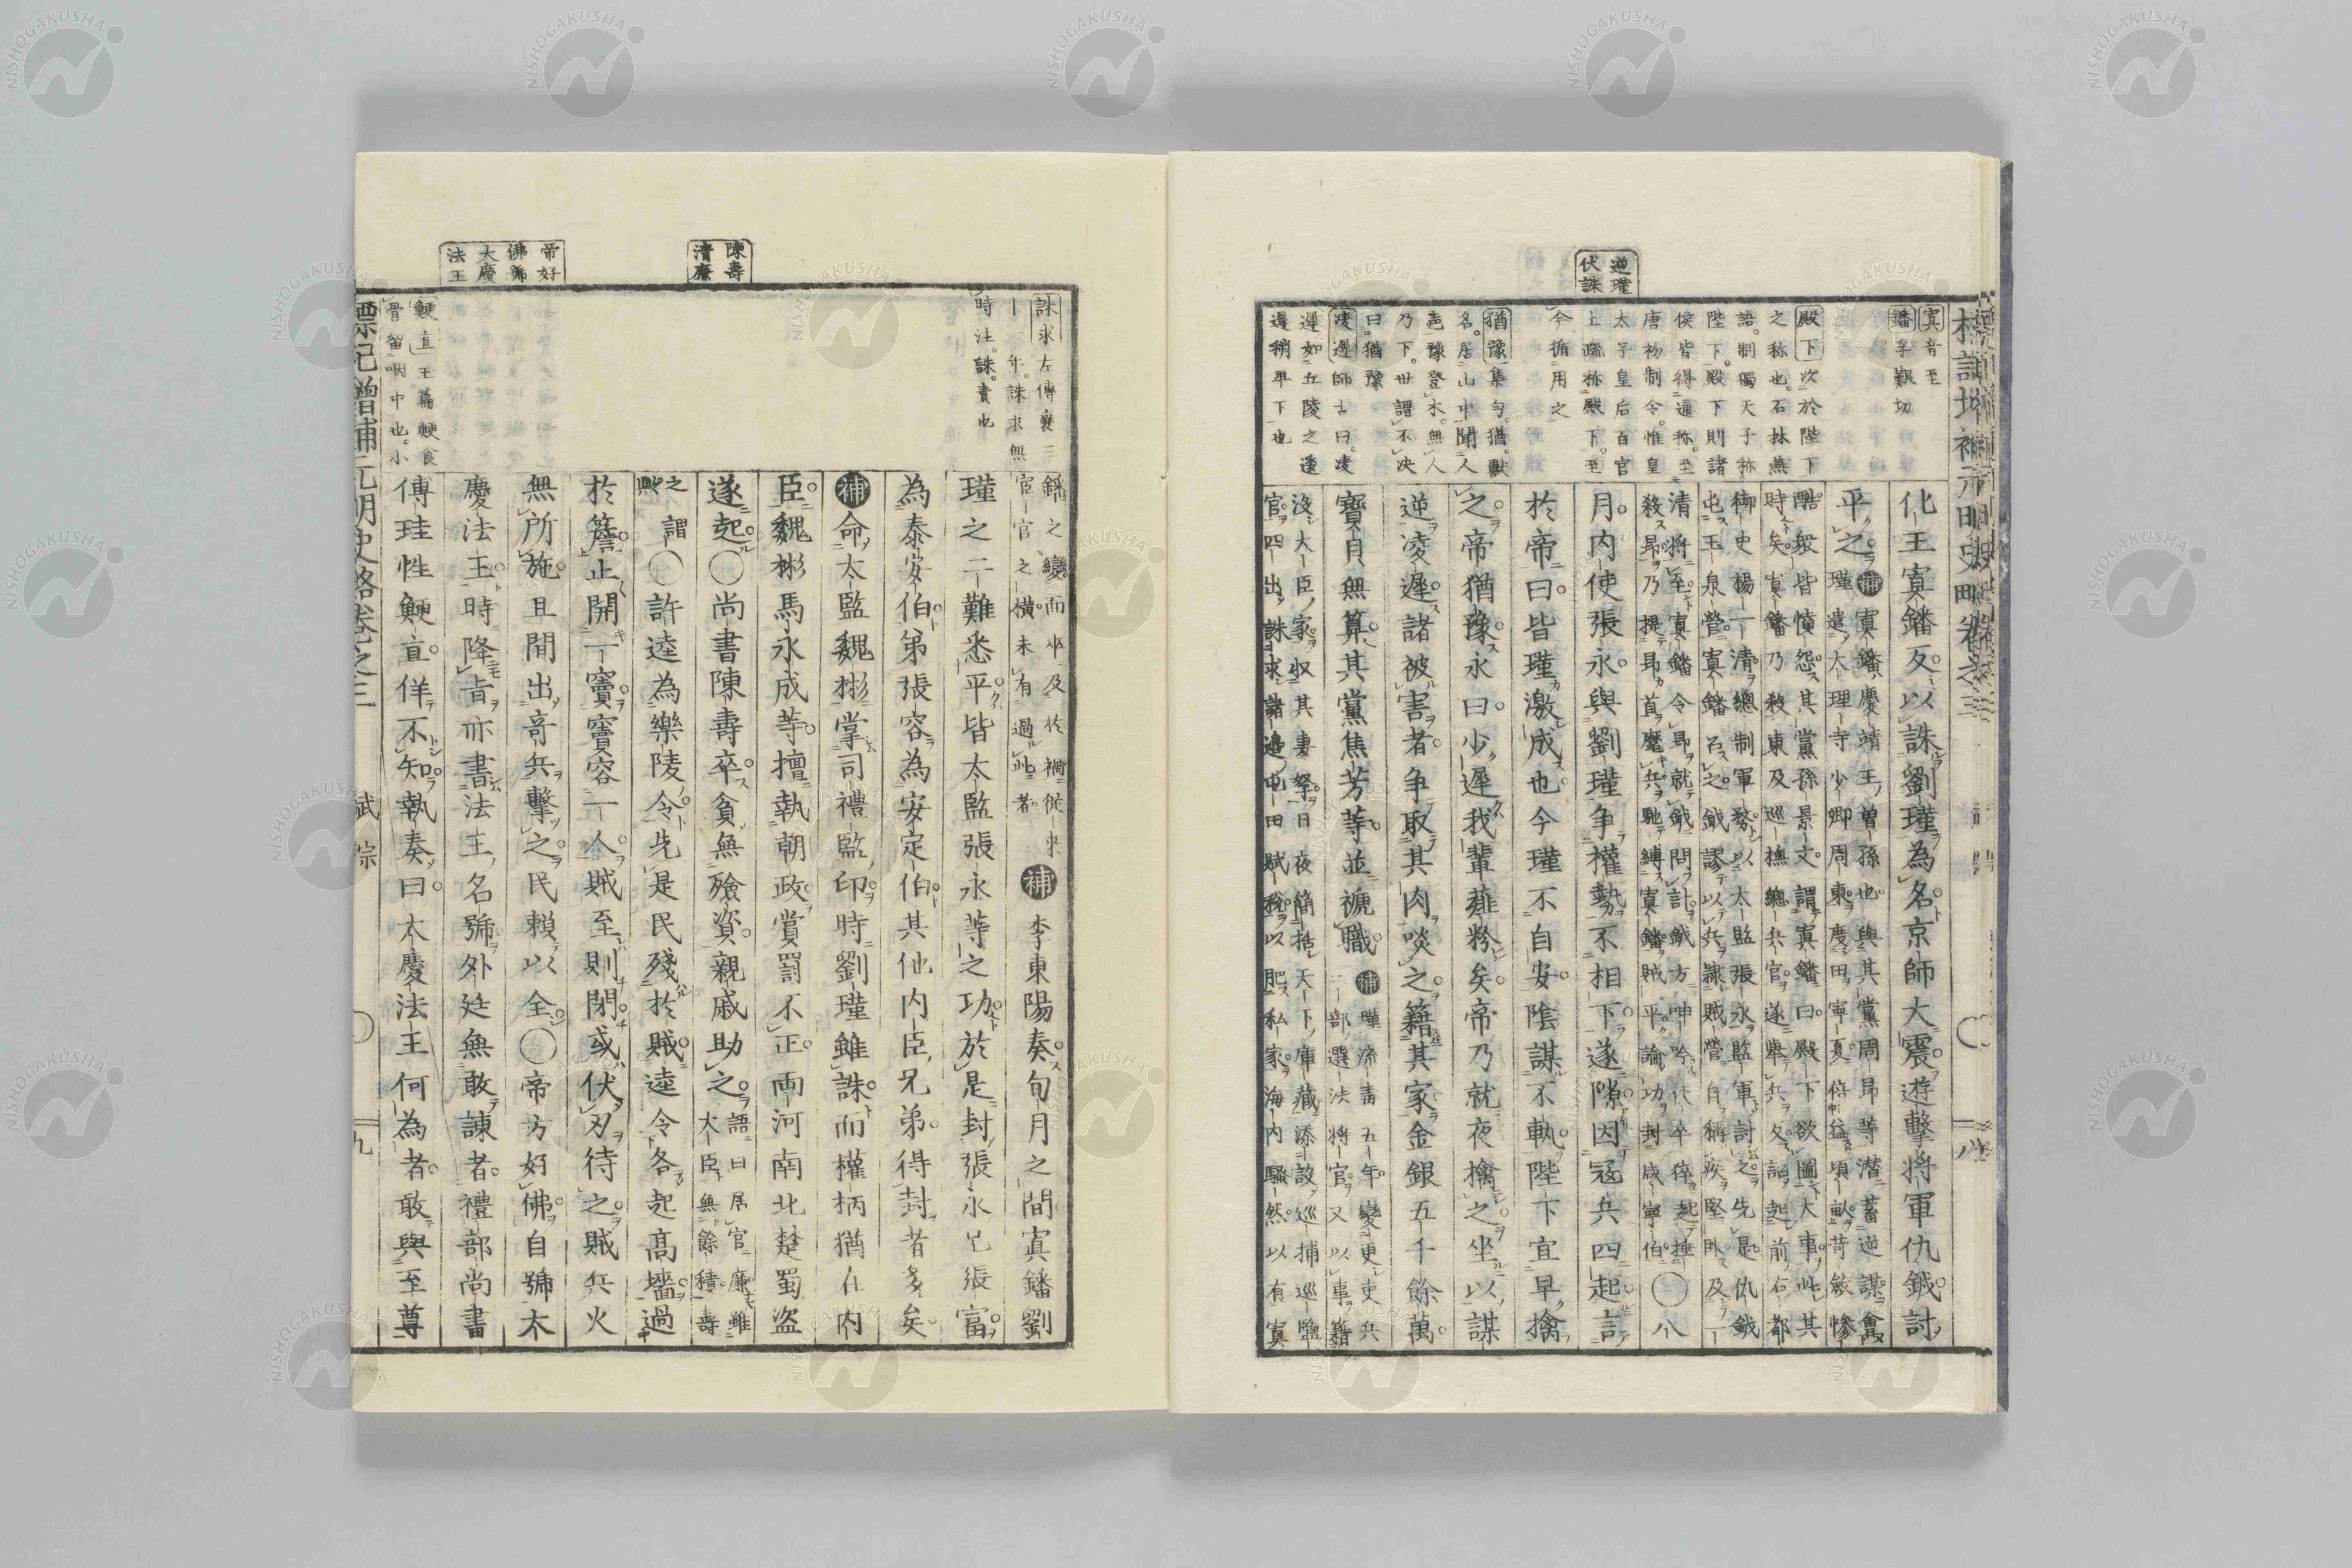 逆瑾
伏誅
寘音至
鐇孚艱切
殿下次於陛下
之称也。石林燕
語。制獨天子称
陛下。殿下則諸
侯皆得通称。至
唐初制令。惟皇
太子皇后百官
上疏称殿下。至
今循用之
猶豫集句。猶。獣
名。居山中聞人
声豫登木。無人
乃下。世謂不決
曰猶豫
凌遅師古曰。凌
遅如丘陵之逶
遅稍卑下也
化王寘鐇反。以誅劉瑾為名。京師大震。遊擊將軍仇鉞討
平之。補寘鐇慶靖王曾孫也。與其黨周昂等潜蓄逆謀。會
瑾遣大理寺少卿周東。度田寧夏。倍益頃畝。苛斂慘
酷。衆皆憤怨。其黨孫景文。謂寘鐇曰。殿下欲圖大事。此其
時矣。寘鐇乃殺東及巡撫總兵官。遂舉兵反。詔起前右都
御史楊一清總制軍務。以太監張永監軍討之。先是仇鉞
屯玉泉營。寘鐇召之。鉞謬以兵隷賊營。自稱疾堅臥。及一
清將至。寘鐇令昂就鉞問計。鉞方呻吟。伏卒倅起捶
殺昂。乃提昂首麾兵馳縛寘鐇。賊平。論功封咸寧伯。〇八
月。内使張永。與劉瑾争權勢不相下。遂隙。因冦兵四起。言
於帝曰。皆瑾激成也。今瑾不自安。陰謀不軌。陛下宜早擒
之。帝猶豫。永曰。少遲。我輩虀粉矣。帝乃就夜擒之。坐以謀
逆凌遲。諸被害者。争取其肉啖之。籍其家。金銀五千餘萬。
寶貝無算。其黨焦芳等。並褫職。補瑾流毒五年。變更吏兵
二部選法將官。又以事籍
沒大臣家。収其妻孥。日夜簡括天下庫藏。添設巡捕巡鹽
官。四出誅求。諸邊屯田賦稅。以肥私家。海内騷然。以有寘
標記增補元明史略卷之三
八
陳壽
清廉
帝好
佛號
大慶
法王
誅求左傳襄三
十一年。誅求無
時注。誅。責也
鯁直玉篇鯁食
骨留咽中也。小
鐇之變。而卒及於禍。從來
宦官之横。未有過此者
補李東陽奏。旬月之間寘鐇劉
瑾之二難悉平。皆太監張永等之功。於是封張永兄張富。
為泰安伯。弟張容為安定伯。其他内臣兄弟。得封者多矣。
補命太監魏彬掌司禮監印。時劉瑾雖誅。而權柄猶在内
臣。魏彬馬永成等。擅執朝政。賞罰不正。兩河南北楚蜀盗
遂起。〇尚書陳壽卒。貧無殮資。親戚助之。語曰居官廉。雖
大臣無餘積。壽
之謂
歟〇許逵為樂陵令。先是民殘於賊。逵令各起高墻。過
於簷。止開一竇。竇容一人。賊至則閉。或伏刃待之。賊兵火
無所施。且間出竒兵擊之。民賴以全。〇帝方好佛。自號太
慶法王。時降旨亦書法王名號。外廷無敢諫者。禮部尚書
傅珪性鯁直。佯不知。執奏曰。太慶法王何為者。敢與至尊
標記增補元明史略卷之三
武宗
九